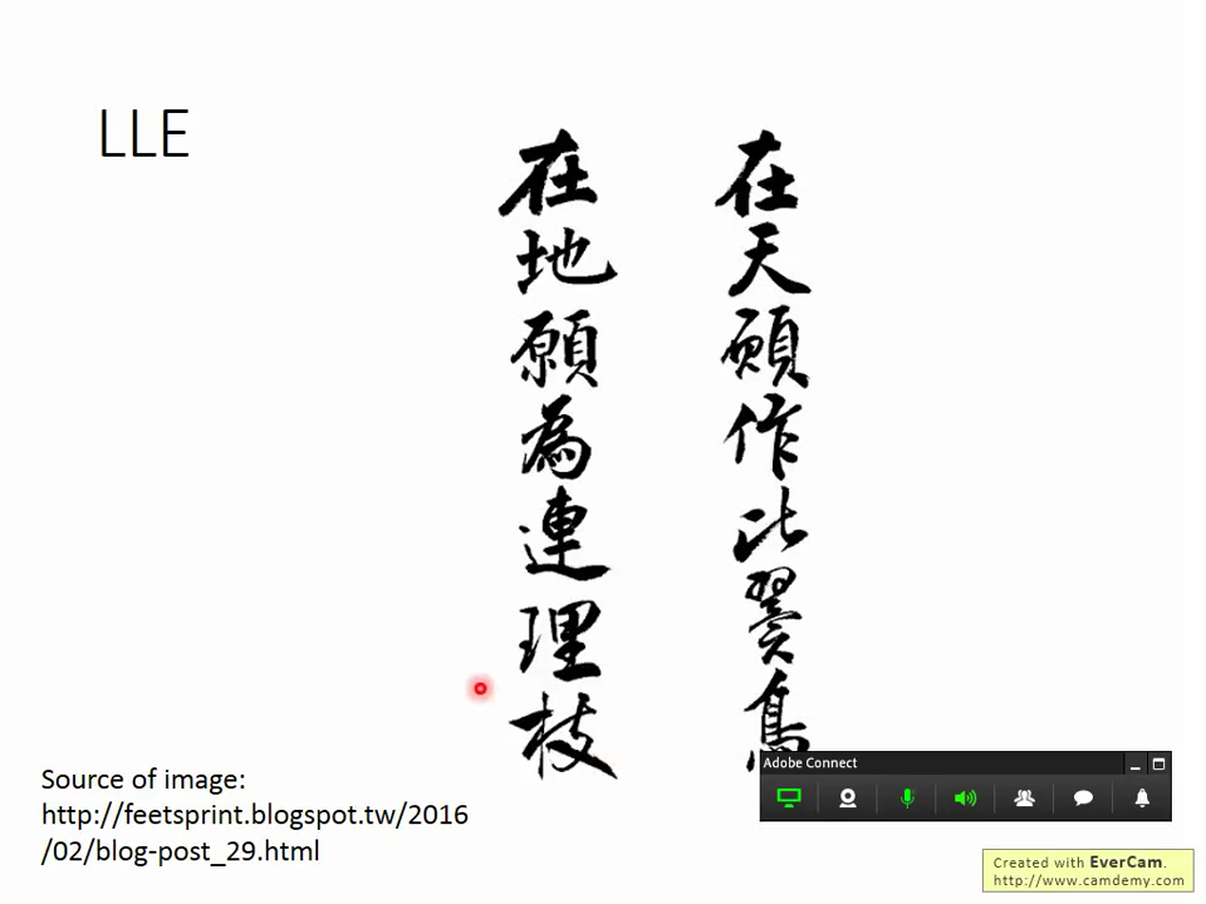 LLE
在天願作比翼鳥
在地願為連理枝
Source of image:
http://feetsprint.blogspot.tw/2016
/02/blog-post_29.html
Adobe Connect
Created with EverCam.
http://www.camdemy.com